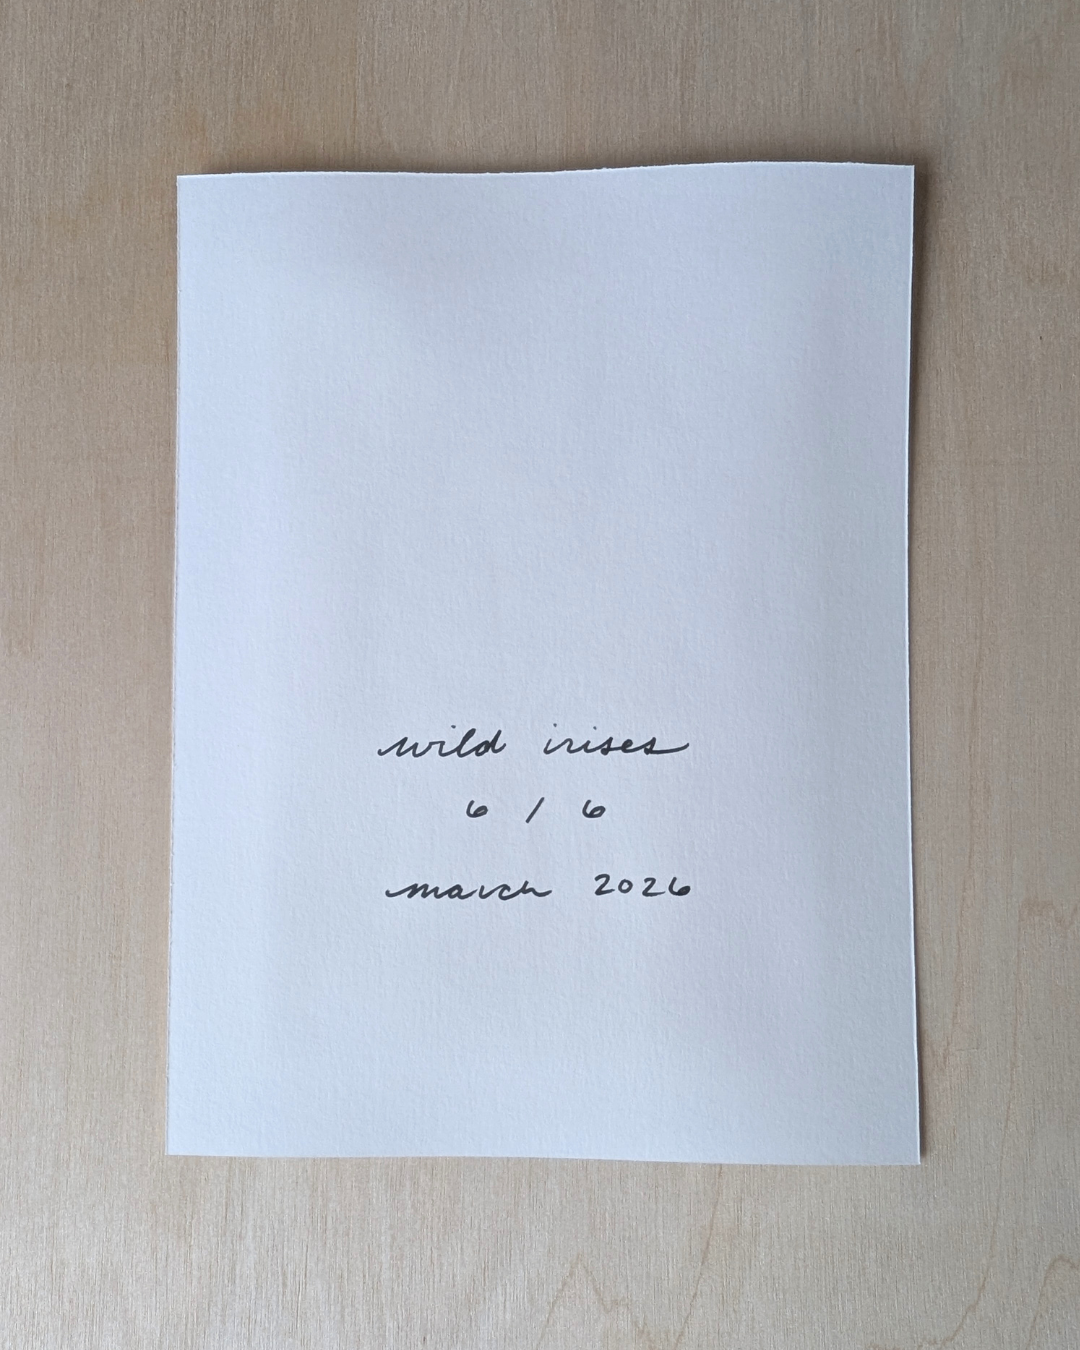 wild irises
6 / 6
march 2026